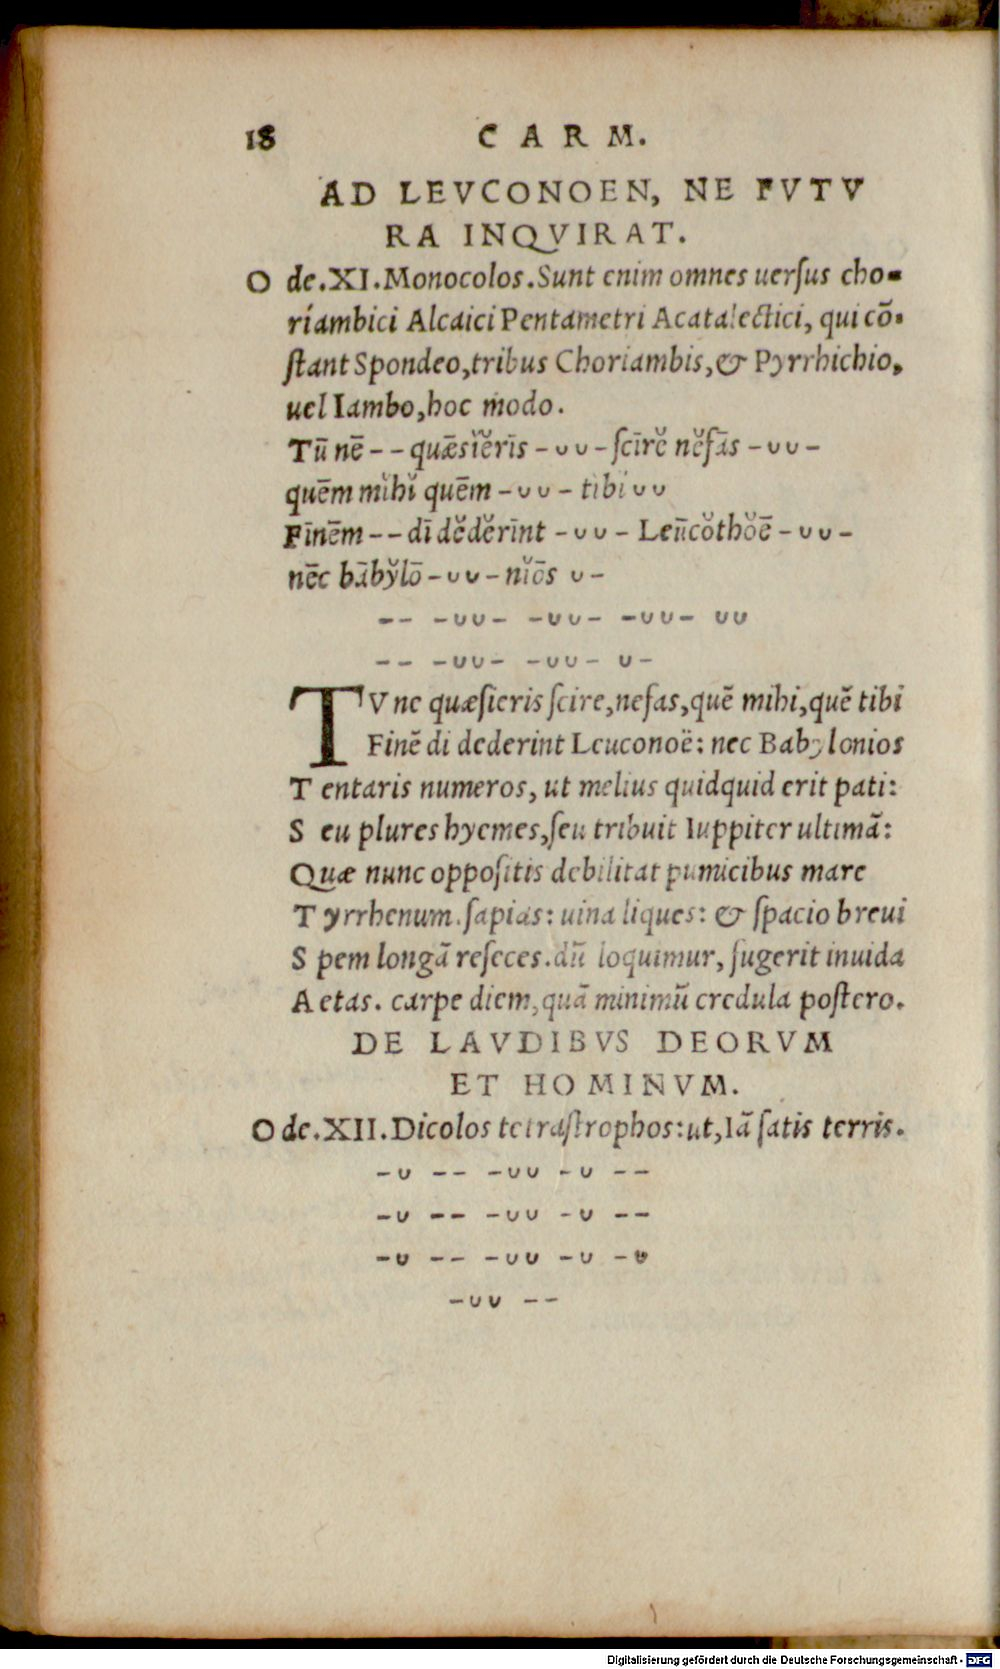 18 CARM.
AD LEVCONOEN, NE FVTV
RA INQVIRAT.
O de.XI.Monocolos.Sunt enim omnes uerſus cho-
riambici Alcaici Pentametri Acatalectici, qui cō-
ſtant Spondeo,tribus Choriambis,& Pyrrhichio,
uel Iambo,hoc modo.
Tū nē - - quǣsĭĕrīs - ∪ ∪ - ſcīrĕ nĕfās - ∪ ∪ -
quēm mĭhĭ quēm - ∪ ∪ - tibi ∪ ∪
Fīnēm - - dī dĕdĕrīnt - ∪ ∪ - Leūcŏthŏē - ∪ ∪ -
nēc bābȳlō - ∪ ∪ - nĭōs ∪ -
-- -∪∪- -∪∪- -∪∪- ∪∪
-- -∪∪- -∪∪- ∪-
TV ne quæſieris ſcire,nefas,quē mihi,quē tibi
Finē di dederint Leuconoë: nec Babylonios
T entaris numeros, ut melius quidquid erit pati:
S eu plures hyemes,ſeu tribuit Iuppiter ultimā:
Quæ nunc oppoſitis debilitat pumicibus mare
T yrrhenum.ſapias: uina liques: & ſpacio breui
S pem longā reſeces.dū loquimur, fugerit inuida
A etas. carpe diem,quā minimū credula poſtero.
DE LAVDIBVS DEORVM
ET HOMINVM.
O de.XII.Dicolos tetraſtrophos:ut,Iā ſatis terris.
-∪ -- -∪∪ -∪ --
-∪ -- -∪∪ -∪ --
-∪ -- -∪∪ -∪ -∪
-∪∪ --
Digitalisierung gefördert durch die Deutsche Forschungsgemeinschaft - DFG